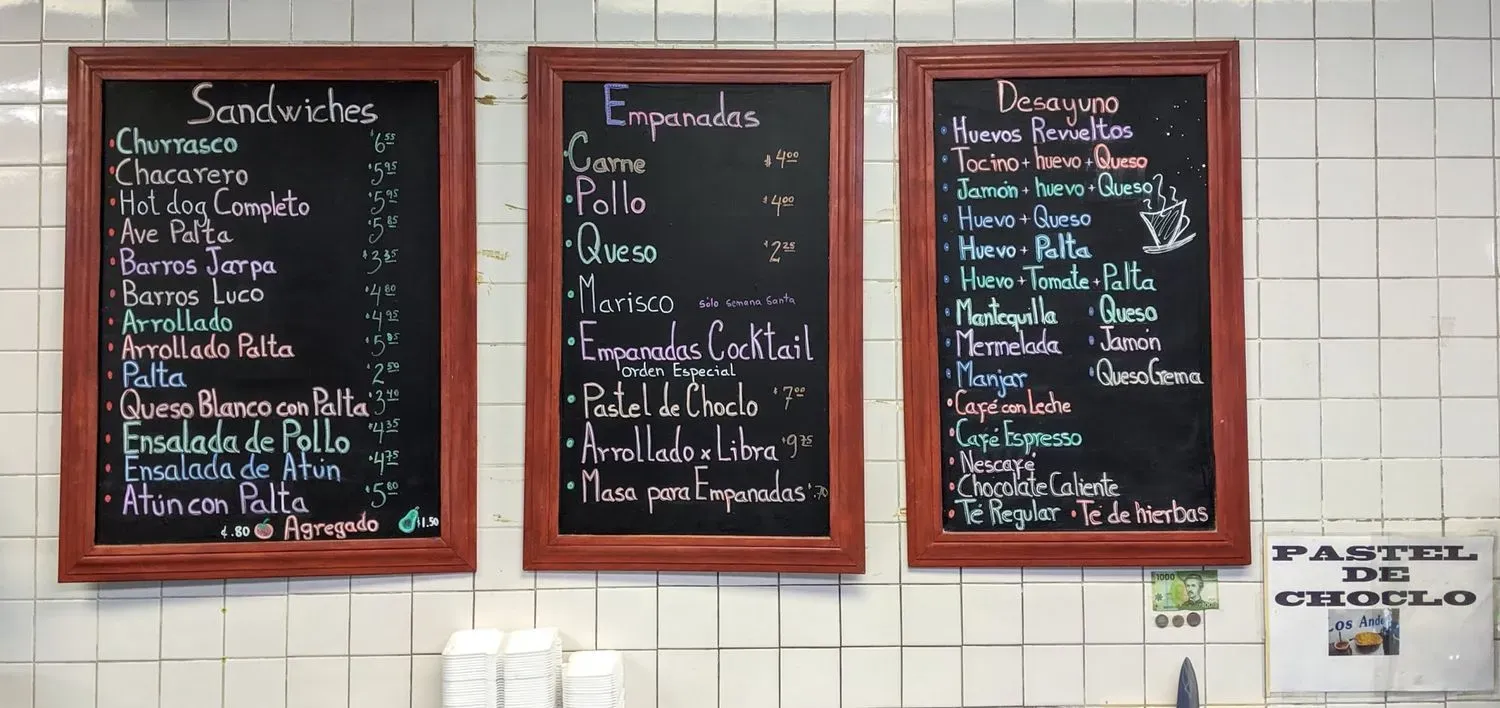 Sandwiches
Churrasco $6.55
Chacarero $5.95
Hot dog Completo $5.95
Ave Palta $5.85
Barros Jarpa $3.35
Barros Luco $4.80
Arrollado $4.95
Arrollado Palta $5.85
Palta $2.50
Queso Blanco con Palta $3.40
Ensalada de Pollo $4.35
Ensalada de Atún $4.75
Atún con Palta $5.80
¢.80 Agregado $1.50
Empanadas
Carne $4.00
Pollo $4.00
Queso $2.25
Marisco sólo semana santa
Empanadas Cocktail
Orden Especial
Pastel de Choclo $7.00
Arrollado x Libra $9.75
Masa para Empanadas $.70
Desayuno
Huevos Revueltos
Tocino + huevo + Queso
Jamón + huevo + Queso
Huevo + Queso
Huevo + Palta
Huevo + Tomate + Palta
Mantequilla • Queso
Mermelada • Jamón
Manjar • Queso Crema
Café con Leche
Café Espresso
Nescafé
Chocolate Caliente
Té Regular • Té de hierbas
1000
PASTEL
DE
CHOCLO